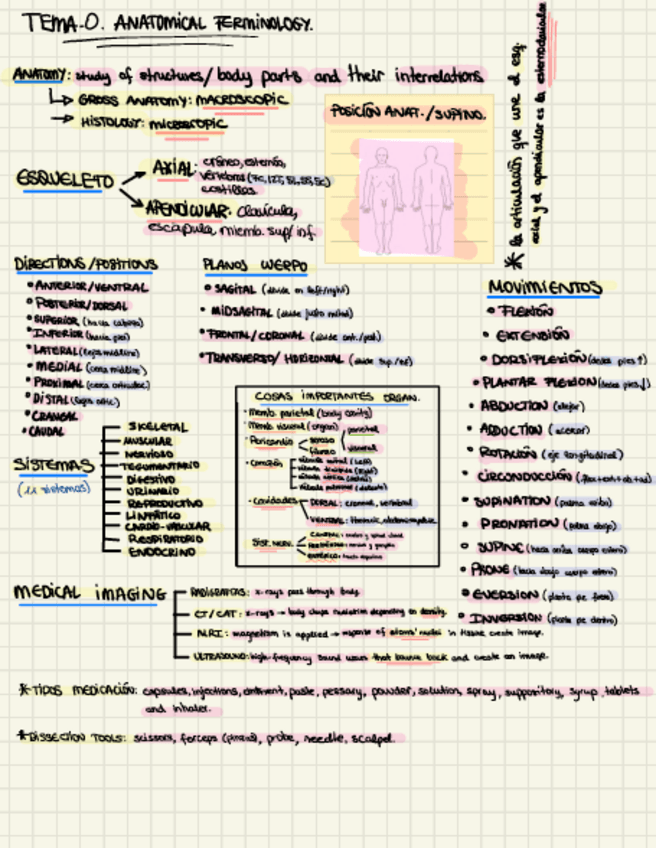 TEMA-0. ANATOMICAL TERMINOLOGY.
ANATOMY: study of structures/body parts and their interrelations
GROSS ANATOMY: MACROSCOPIC
HISTOLOGY: MICROSCOPIC
POSICIÓN ANAT./SUPINO.
* la articulación que une el esq.
axial y el apendicular es la esternoclavicular
ESQUELETO
AXIAL: cráneo, esternón,
vértebras
costillas
APENDICULAR: Clavícula,
escápula, miemb. sup/inf.
DIRECTIONS/POSITIONS
• ANTERIOR/VENTRAL
• POSTERIOR/DORSAL
• SUPERIOR (hacia cabeza)
• INFERIOR (hacia pies)
• LATERAL (lejos midline)
• MEDIAL (cerca midline)
• PROXIMAL
• DISTAL
• CRANEAL
• CAUDAL
PLANOS CUERPO
• SAGITAL (divide en left/right)
• MIDSAGITAL (divide justo mitad)
• FRONTAL/CORONAL (divide ant./post.)
• TRANSVERSO/HORIZONTAL (divide sup./inf)
MOVIMIENTOS
• FLEXIÓN
• EXTENSIÓN
• DORSIFLEXIÓN (dedos pies ↑)
• PLANTAR FLEXION (dedos pies ↓)
• ABDUCTION (alejar)
• ADDUCTION (acercar)
• ROTACIÓN (eje longitudinal)
• CIRCONDUCCIÓN
• SUPINATION (palma arriba)
• PRONATION (palma abajo)
• SUPINE (hacia arriba cuerpo entero)
• PRONE (hacia abajo cuerpo entero)
• EVERSION (planta pie fuera)
• INVERSION (planta pie dentro)
SISTEMAS
(11 sistemas)
SKELETAL
MUSCULAR
NERVIOSO
TEGUMENTARIO
DIGESTIVO
URINARIO
REPRODUCTIVO
LINFÁTICO
CARDIO-VASCULAR
RESPIRATORIO
ENDOCRINO
COSAS IMPORTANTES ORGAN.
• Memb. parietal (body cavity)
• Memb. visceral (organ)
• Pericardio
seroso
fibroso
parietal
visceral
• Corazón
• Cavidades
DORSAL: craneal, vertebral
VENTRAL:
Sist. nerv.
MEDICAL IMAGING
RADIOGRAFÍAS: x-rays pass through body
CT/CAT: x-rays → body radiation depending on density.
M.R.I: magnetism is applied → response of atoms' nuclei in tissue create image.
ULTRASOUND: high-frequency sound waves that bounce back and create an image.
*TIPOS MEDICACIÓN: capsules, injections, ointment, paste, pessary, powder, solution, spray, suppository, syrup, tablets
and inhaler.
*DISSECTION TOOLS: scissors, forceps (pinzas), probe, needle, scalpel.